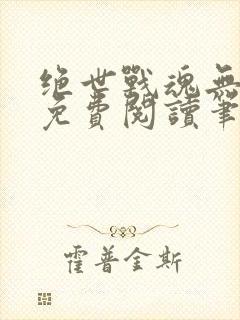 绝世战魂无
免費閱讀筆
霍普金斯